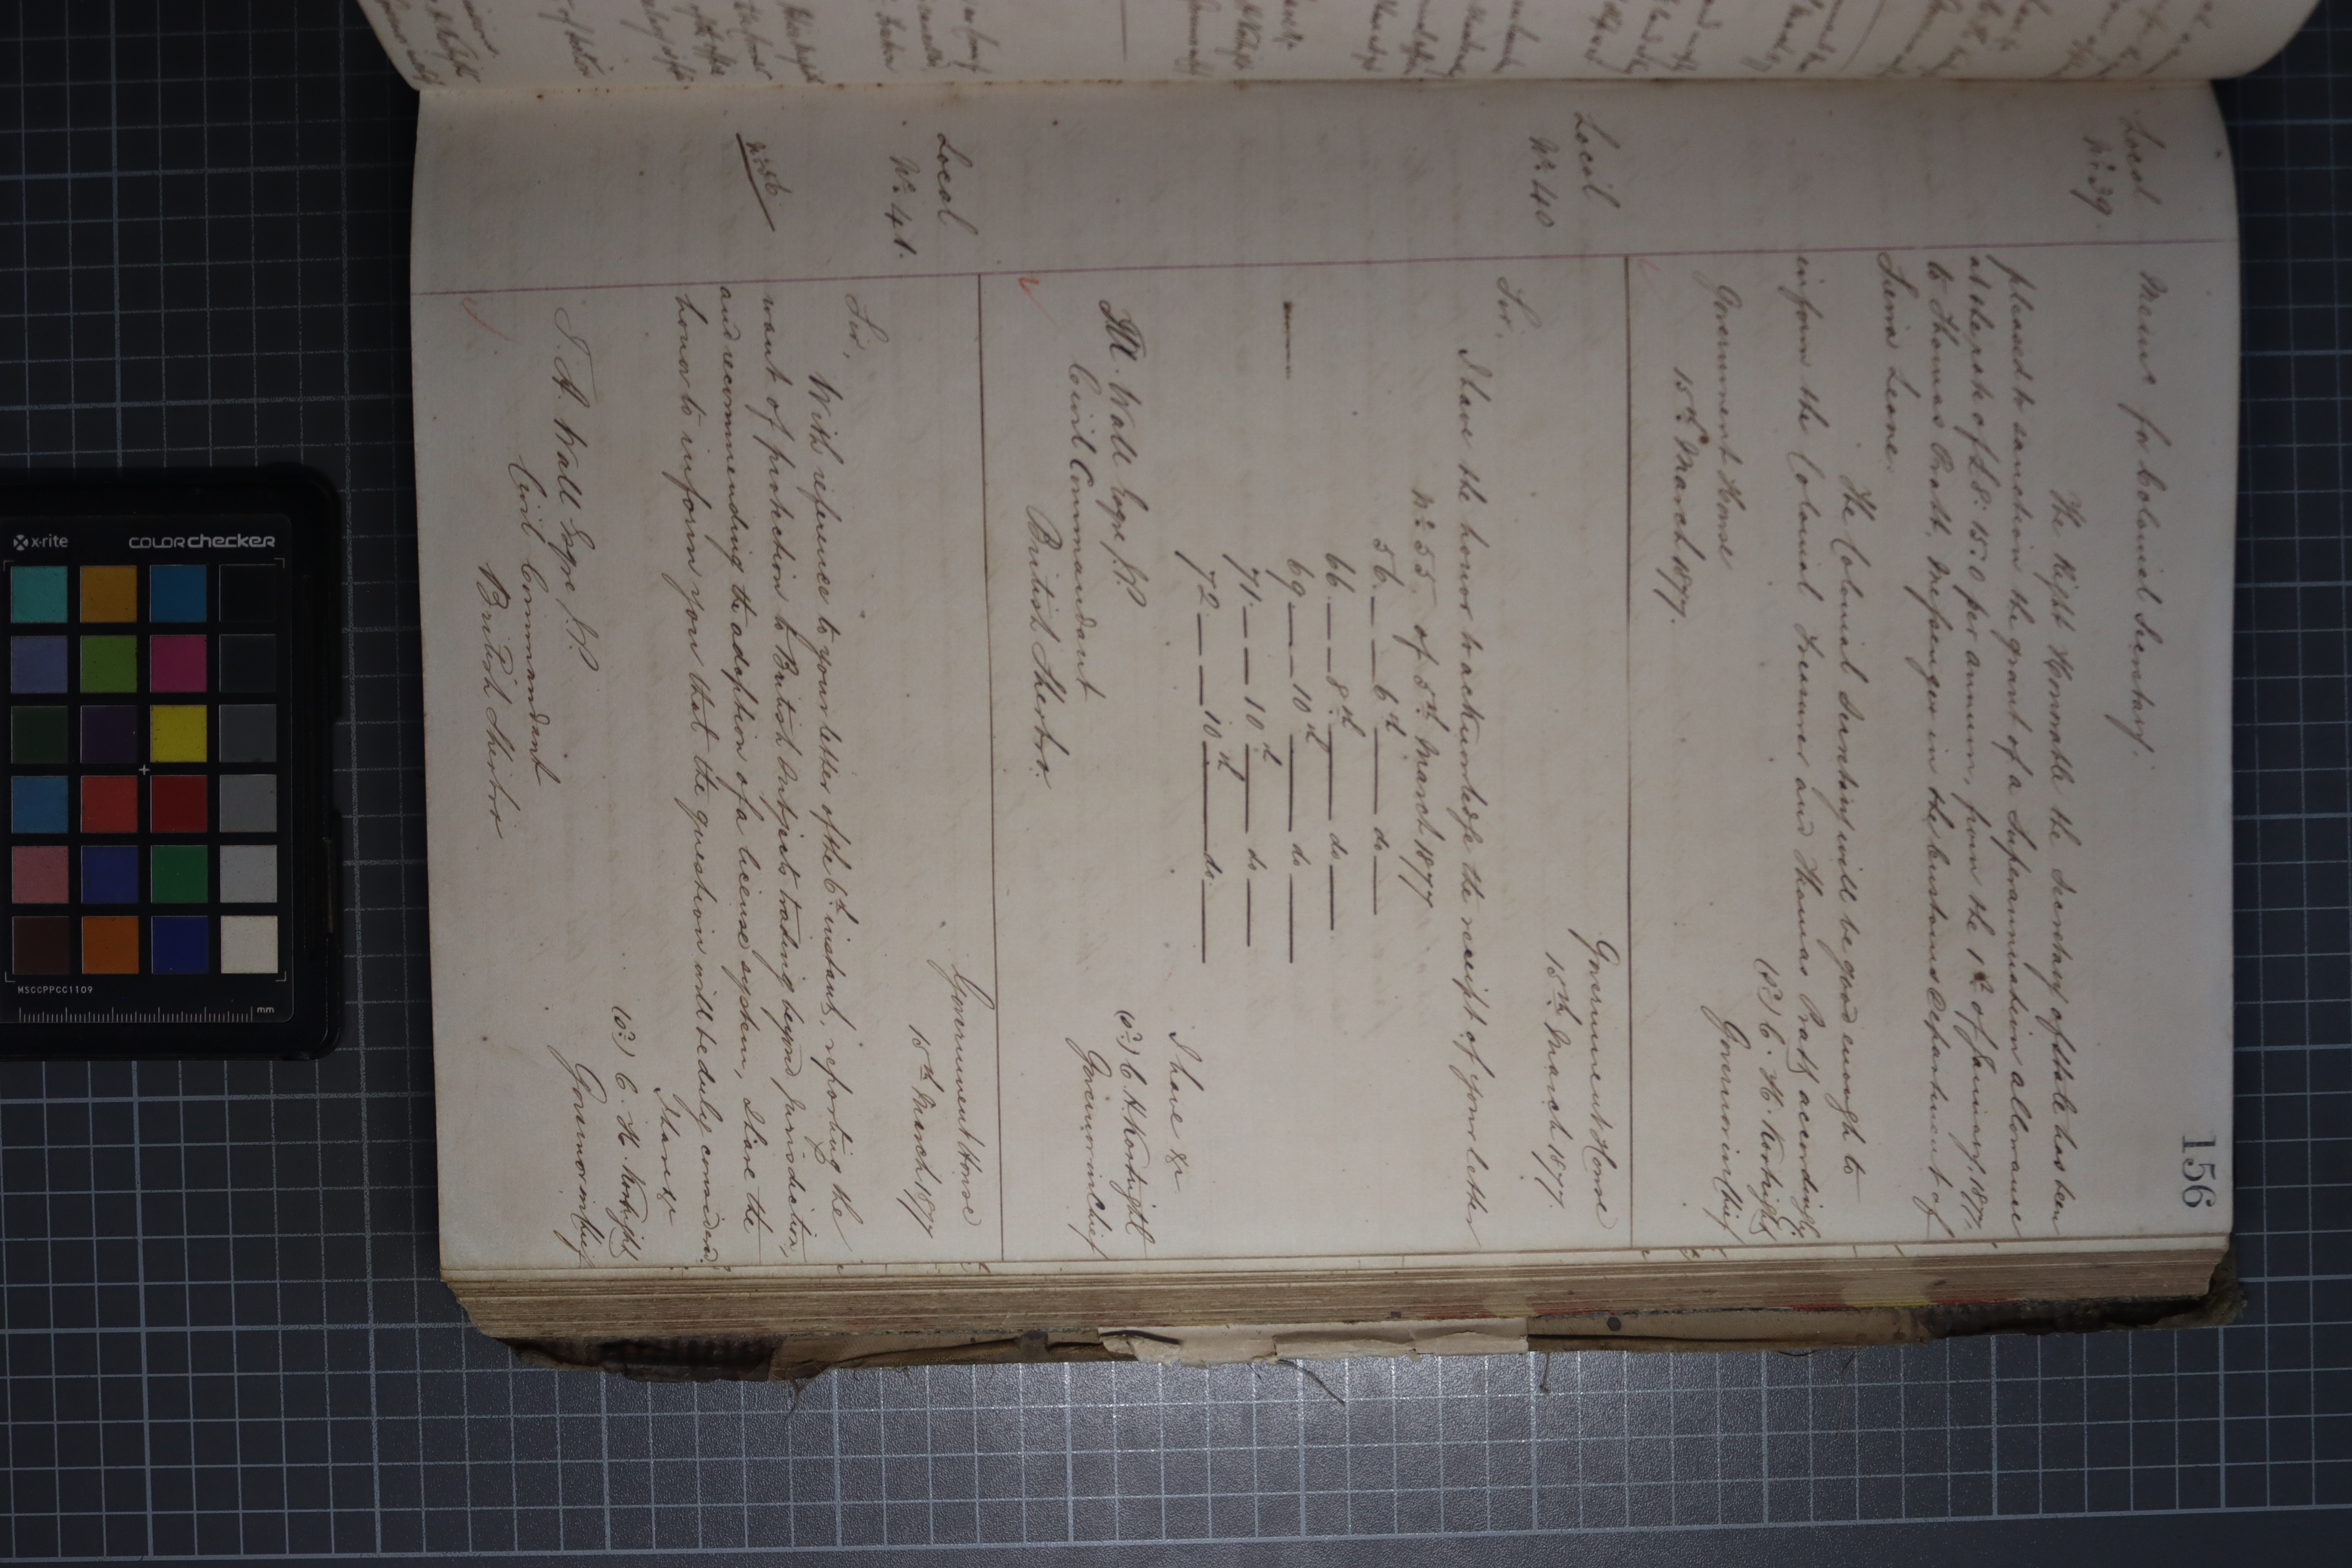 156
Local
No. 39.
Memo for Colonial Secretary.
The Right Honorable the Secretary of State has been
pleased to sanction the grant of a Superannuation allowance
at the rate of £8:15:0 per annum, from the 1st of January, 1877,
to Thomas Pratt, Messenger in the Customs Department of
Sierra Leone.
The Colonial Secretary will be good enough to
inform the Colonial Treasurer and Thomas Pratt accordingly.
(Sd) C. H. Kortright
Government House
Governor in Chief
15th March 1877.
Local
No. 40
Government House
15th March 1877.
Sir,
I have the honor to acknowledge the receipt of your letter
No. 55 of 5th March 1877
56. — 6th — do —
66. — 8th — do —
69 — 10th — do —
71. — 10th — do —
72 — 10th — do —
I have &c
(Sd) C. H. Kortright
Governor in Chief
Wall Esqre J.P.
Civil Commandant
British Sherbro.
Local
No. 41.
Government House
15th March 1877
Sir,
With reference to your letter of the 6th instant, reporting the
want of protection to British Subjects trading beyond Jurisdiction,
and recommending the adoption of a license system, I have the
honor to inform you that the question will be duly considered.
I have &c
(Sd) C. H. Kortright
Governor in Chief
J. A. Wall Esqre J.P.
Civil Commandant
British Sherbro
x-rite
colorchecker
MSCCPPCC1109
mm